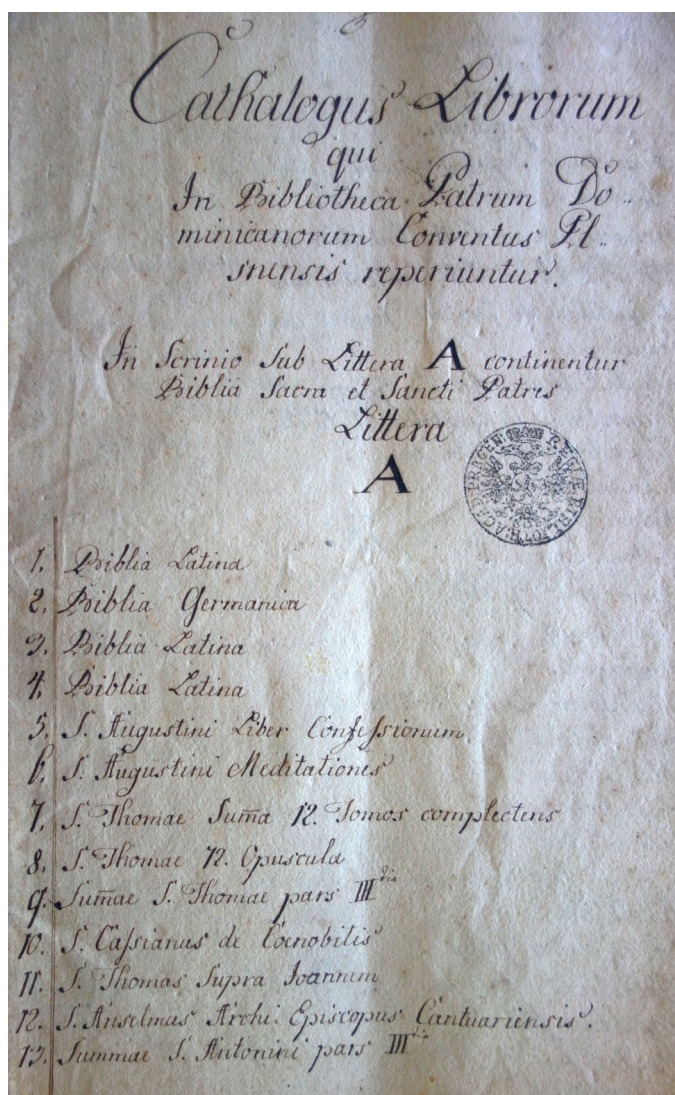 Cathalogus Librorum
qui
In Bibliotheca Patrum Do..
minicanorum Conventus Pl..
snensis reperiuntur.
In Scrinio Sub Littera A continentur
Biblia Sacra et Sancti Patres
Littera
A
1. Biblia Latina
2. Biblia Germanica
3. Biblia Latina
4. Biblia Latina
5. S. Augustini Liber Confessionum.
6. S. Augustini Meditationes
7. S. Thomae Sum̃a 12. Tomos complectens
8. S. Thomae 72. Opuscula
9. Sum̃ae S. Thomae pars III
10. S. Cassianus de Coenobitis
11. S. Thomas Supra Joannem
12. S. Anselmus Archi. Episcopus Cantuariensis.
13. Summae S. Antonini pars III